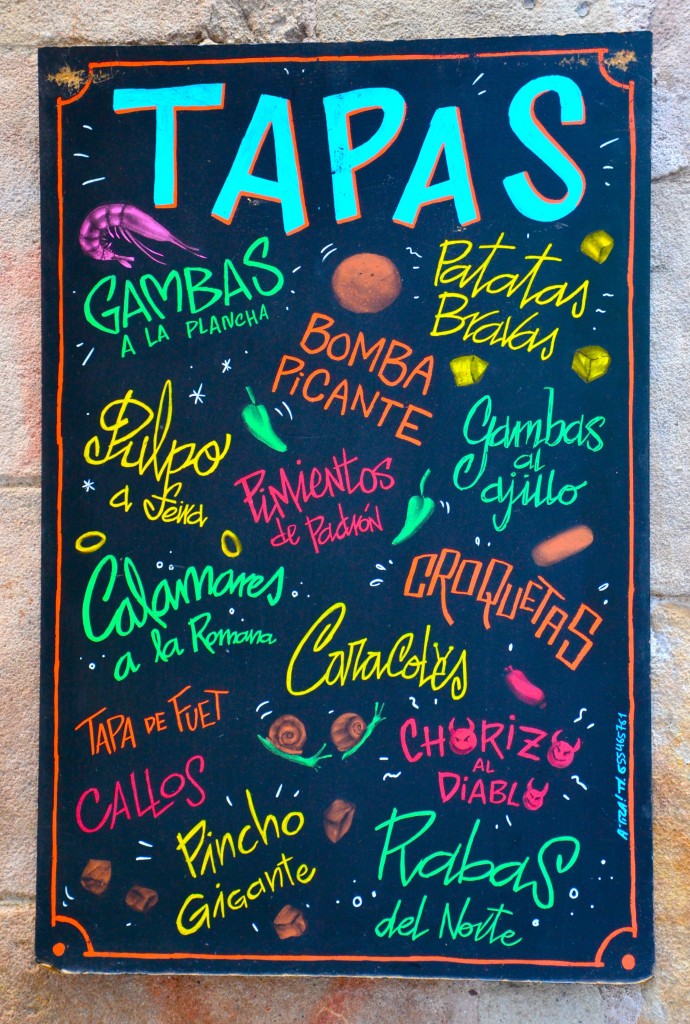 TAPAS
GAMBAS
A LA PLANCHA
Patatas
Bravas
BOMBA
PiCANTE
Pulpo
a feira
PiMientos
de Padrón
gambas
al
ajillo
Calamares
a la Romana
CROQUETAS
Caracoles
TAPA DE FUET
CALLOS
CHORIZO
AL
DiABLO
Pincho
Gigante
Rabas
del Norte
655465761